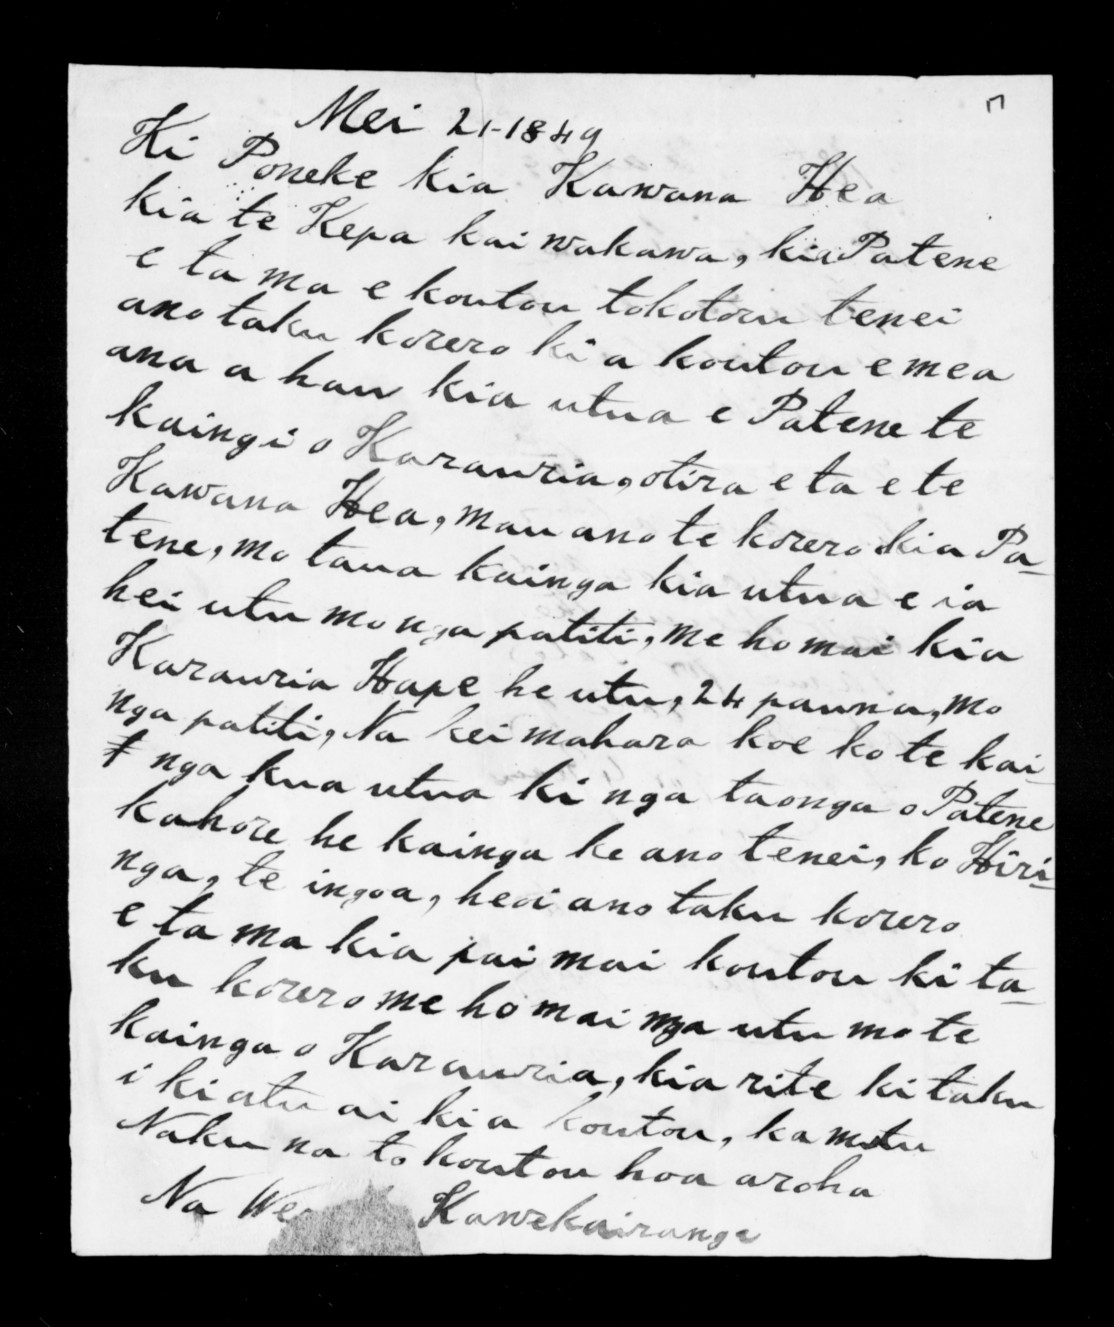 Mei 21-1849
Ki Poneke kia Kawana Hea
kia te Kepa kai wakawa, kia Patene
e ta ma e koutou tokotoru tenei
ano taku korero ki a koutou e mea
ana a hau kia utua e Patene te
kaingi o Karauria, otira e ta e te
Kawana Hea, mau ano te korero kia Pa-
tene, mo taua kainga kia utua e ia
hei utu mo nga patiti, me ho mai kia
Karauria Hape he utu, 24 pauna, mo
nga patiti, Na kei mahara koe ko te kai
nga kua utua ki nga taonga o Patene
kahore he kainga ke ano tenei, ko Hiri-
nga, te ingoa, heoi ano taku korero
e ta ma kia pai mai koutou ki ta-
ku korero me ho mai nga utu mo te
kainga o Karauria, kia rite ki taku
i ki atu ai ki a koutou, ka mutu
Naku na to koutou hoa aroha
Na Kawekairangi